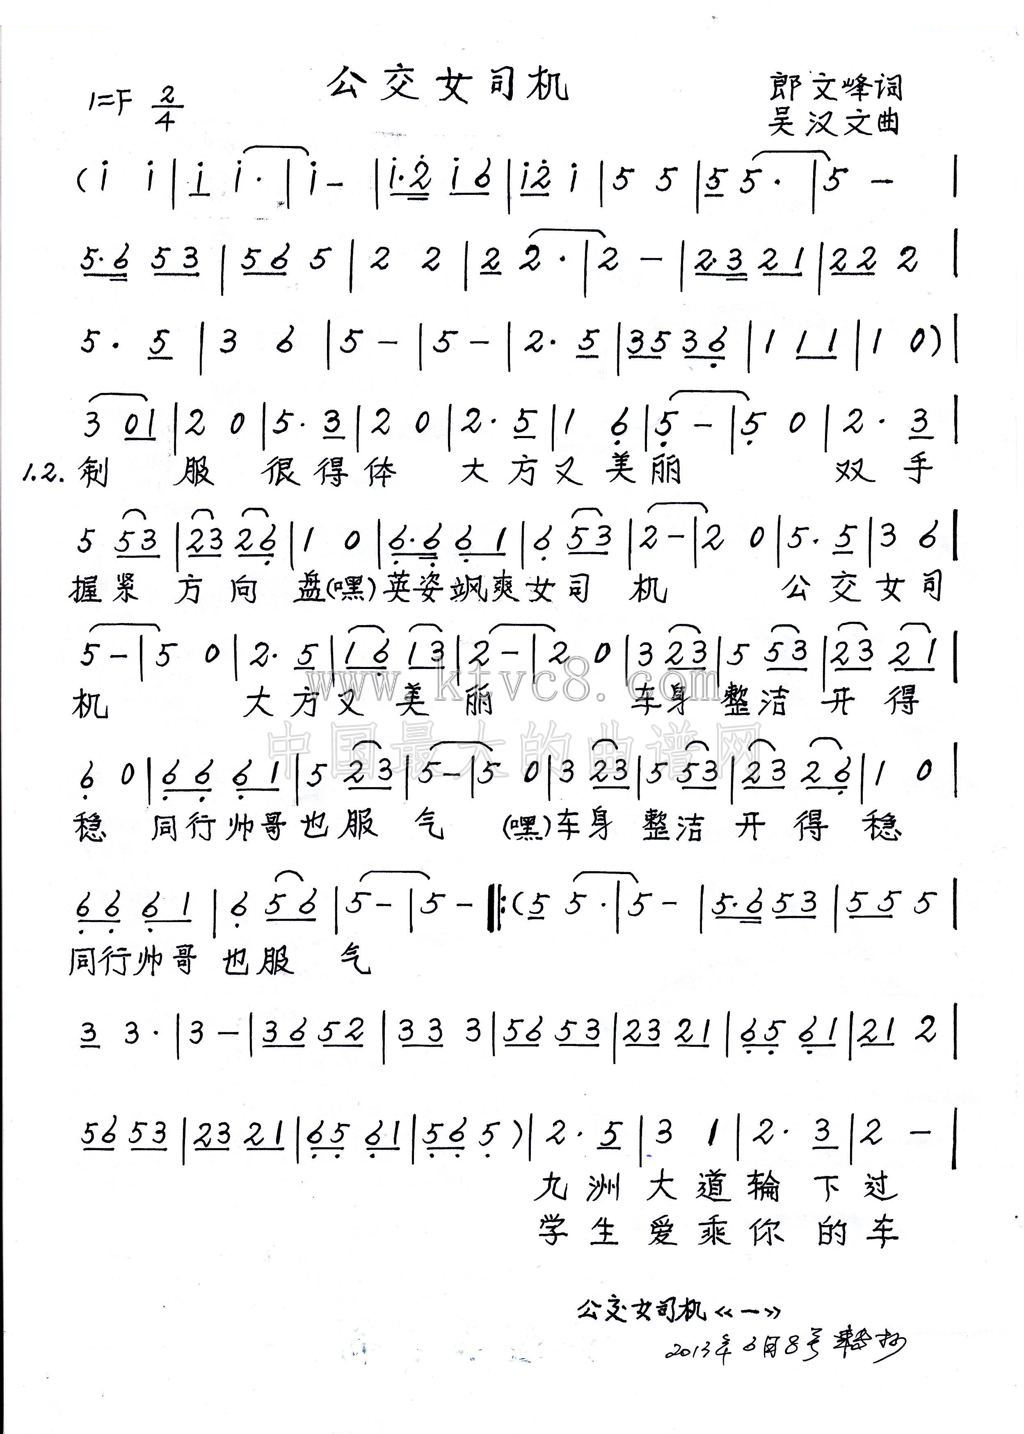 公交女司机
1=F 2/4
郎文峰词
吴汉文曲
(i i | i i· | i - | i·2 i6 | i2 i | 5 5 | 5 5· | 5 - |
5·6 53 | 56 5 | 2 2 | 2 2· | 2 - | 2·3 21 | 22 2 |
5· 5 | 3 6 | 5 - | 5 - | 2· 5 | 35 36 | 1 11 | 1 0) |
3 01 | 2 0 | 5· 3 | 2 0 | 2· 5 | 1 6 | 5 - | 5 0 | 2· 3 |
1.2. 制服很得体 大方又美丽 双手
5 53 | 23 26 | 1 0 | 6·6 61 | 6 53 | 2 - | 2 0 | 5· 5 | 3 6 |
握紧方向盘(嘿)英姿飒爽女司机 公交女司
5 - | 5 0 | 2· 5 | 16 13 | 2 - | 2 0 | 3 23 | 5 53 | 23 21 |
机 大方又美丽 车身整洁开得
www.ktvc8.com
中国最大的曲谱网
6 0 | 66 61 | 5 23 | 5 - | 5 0 | 3 23 | 5 53 | 23 26 | 1 0
稳 同行帅哥也服气 (嘿)车身整洁开得稳
66 61 | 6 56 | 5 - | 5 - ‖: (5 5· | 5 - | 5·6 53 | 55 5 |
同行帅哥也服气
3 3· | 3 - | 36 52 | 33 3 | 56 53 | 23 21 | 65 61 | 21 2 |
56 53 | 23 21 | 65 61 | 56 5) | 2· 5 | 3 1 | 2· 3 | 2 - |
九洲大道轮下过
学生爱乘你的车
公交女司机《一》
2013年6月8号